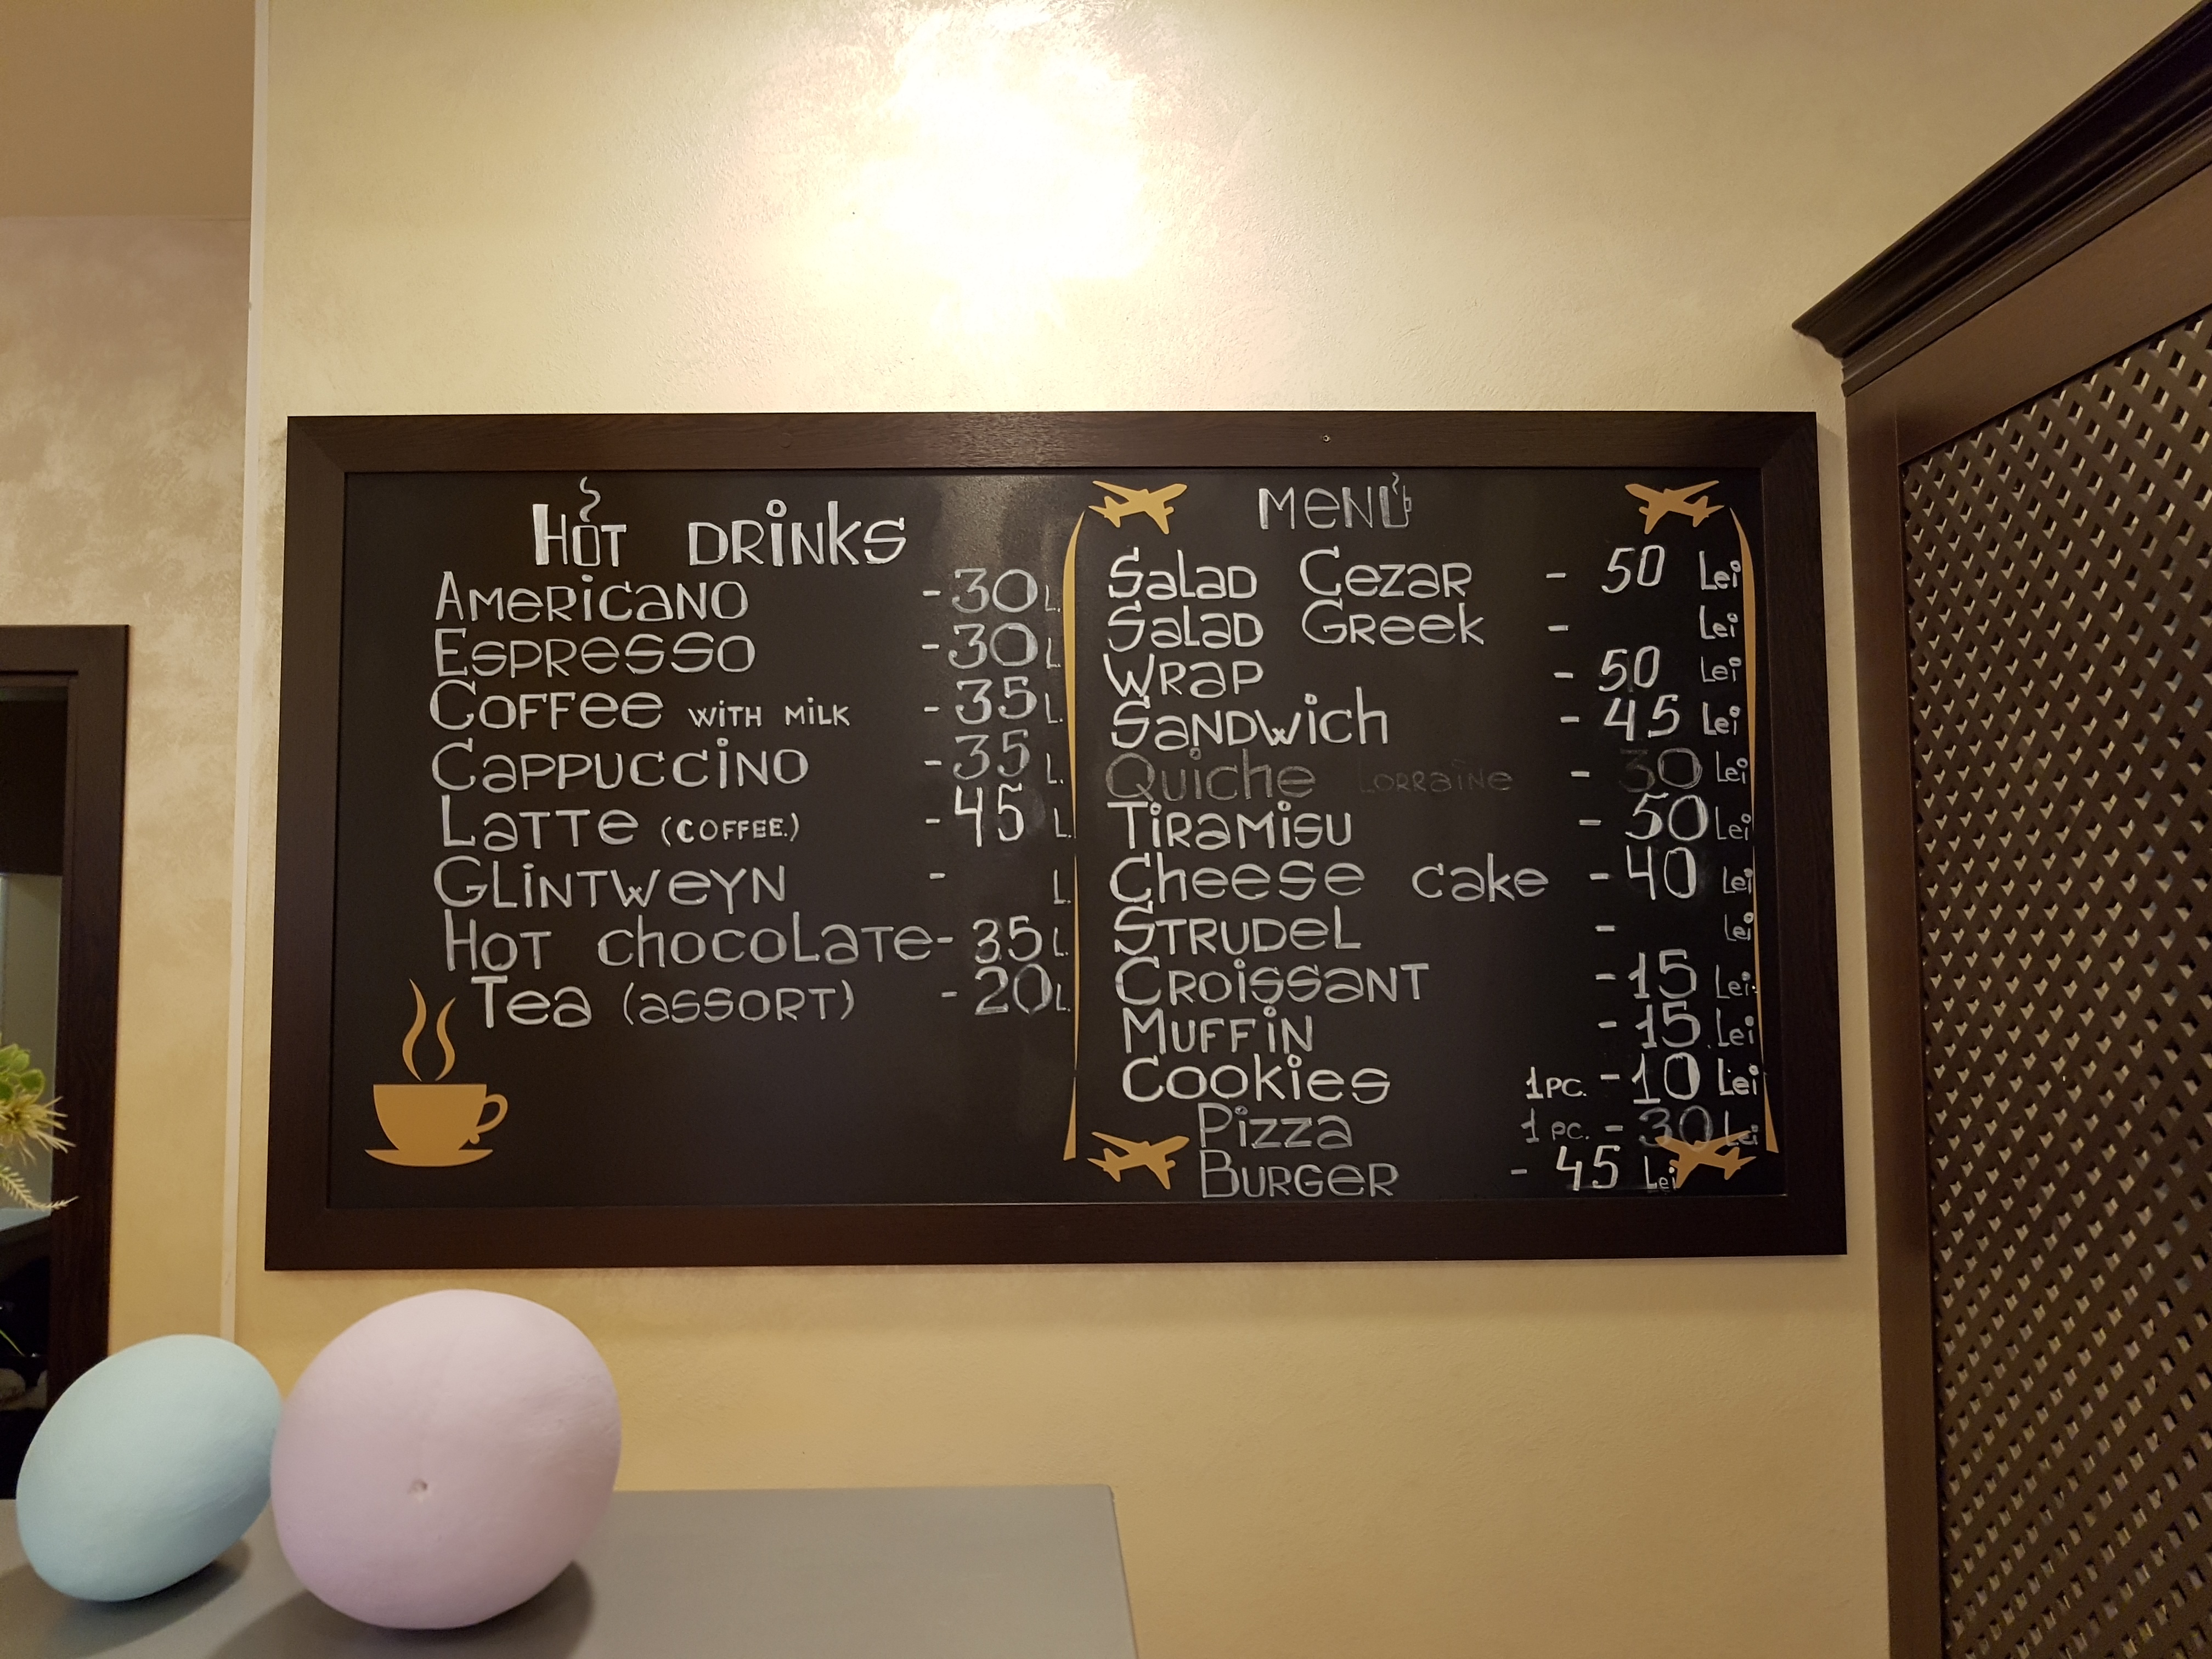 HOT DRINKS
AMERICANO - 30 L.
ESPRESSO - 30 L.
COFFEE WITH MILK - 35 L.
CAPPUCCINO - 35 L.
LATTE (COFFEE.) - 45 L.
GLINTWEYN - L.
HOT CHOCOLATE - 35 L.
TEA (ASSORT) - 20 L.
MENU
SALAD CEZAR - 50 Lei
SALAD GREEK - Lei
WRAP - 50 Lei
SANDWICH - 45 Lei
QUICHE LORRAINE - 30 Lei
TIRAMISU - 50 Lei
CHEESE CAKE - 40 Lei
STRUDEL - Lei
CROISSANT - 15 Lei
MUFFIN - 15 Lei
COOKIES 1 PC. - 10 Lei
PIZZA 1 PC. - 30 Lei
BURGER - 45 Lei